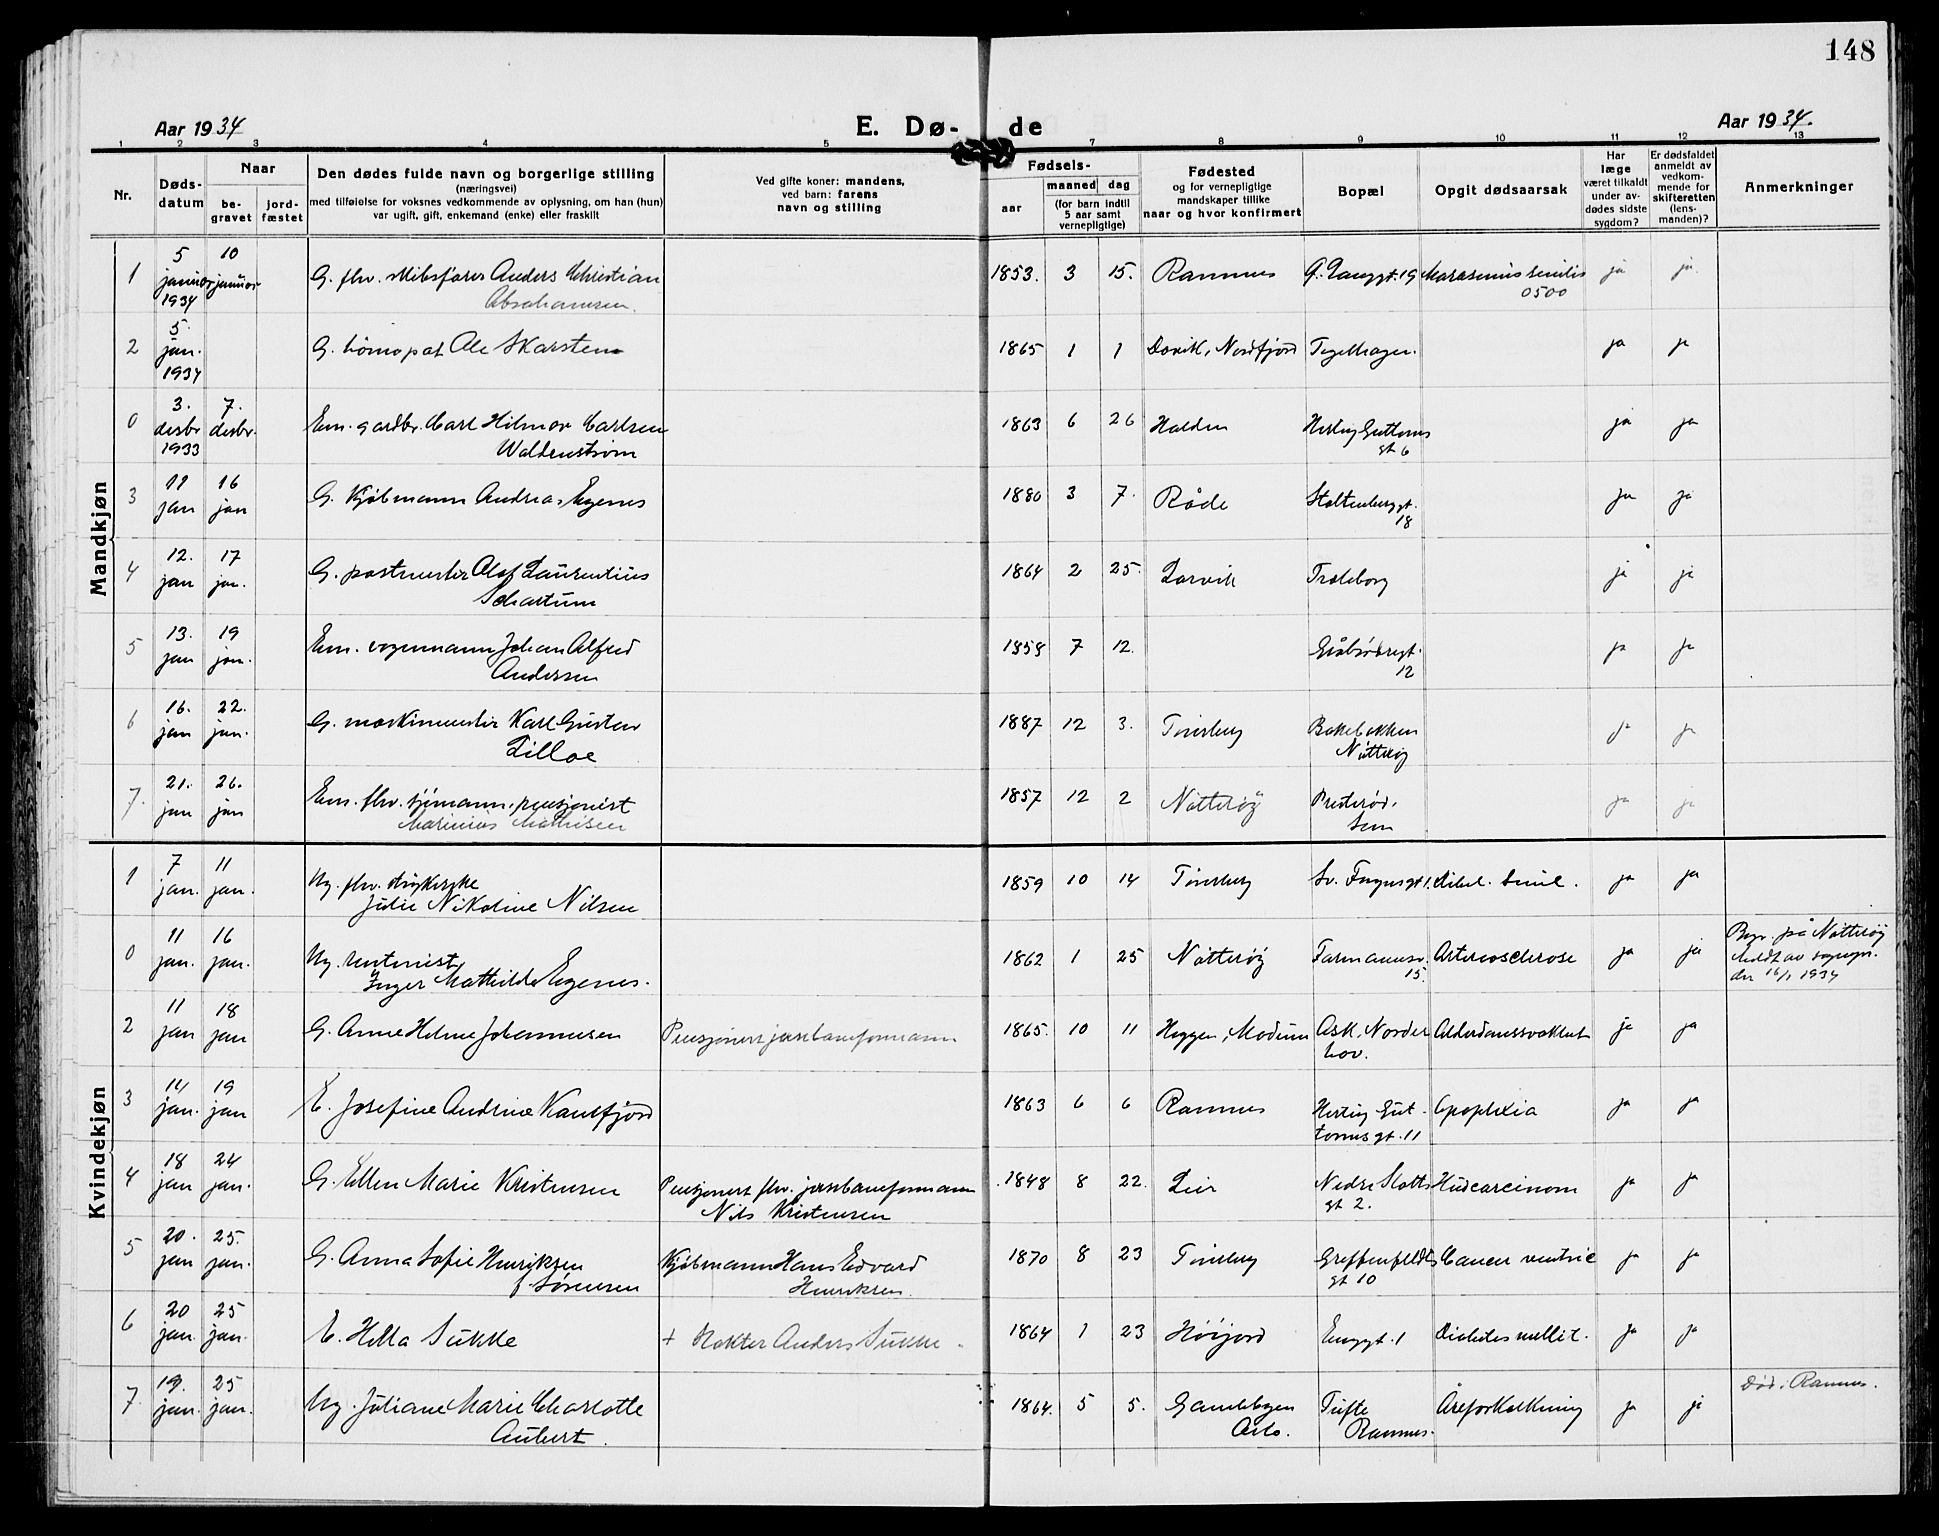 148
Aar 1934
E. Dø-
de
Aar 1934.
1 2 3 4 5 7 8 9 10 11 12 13
Nr.
Døds-
datum
Naar
be-
gravet
jord-
fæstet
Den dødes fulde navn og borgerlige stilling
(næringsvei)
med tilføielse for voksnes vedkommende av oplysning, om han (hun)
var ugift, gift, enkemand (enke) eller fraskilt
Ved gifte koner: mandens,
ved barn: farens
navn og stilling
Fødsels-
aar
maaned dag
(for barn indtil
5 aar samt
vernepligtige)
Fødested
og for vernepligtige
mandskaper tillike
naar og hvor konfirmert
Bopæl
Opgit dødsaarsak
Har
læge
været tilkaldt
under av-
dødes sidste
sygdom?
Er dødsfaldet
anmeldt av
vedkom-
mende for
skifteretten
(lens-
manden)?
Anmerkninger
Mandkjøn
1 5 januar 1934 10 januar G. fhv. skibsfører Anders Christian 1853. 3 15. Ramnes 19 Marasmus senilis ja ja
Abrahamsen. 0500
2 5. jan. 1934 G. homopat Ole Skarstein 1865 1 1 Davik, Nordfjord Teglhagen. ja ja
0 3. desbr 1933 7. desbr. Em. gardbr. Carl Hilmar Carlsen 1863 6 26 Halden Hertug Guttorms ja ja
Waldenstrøm gt 6
3 11 jan 16 jan G. Kjøbmann Andreas Egenes 1880 3 7. Råde Stoltenberggt. ja ja
18
4 12. jan 17 jan. G. postmester Olaf Laurentius 1864 2 25. Larvik Træleborg ja ja
Schartum
5 13. jan 19 jan. Em. vognmann Johan Alfred 1858 7 12. Gråbrødregt. ja ja
Andersen 12
6 16. jan 22. jan. G. maskinmester Karl Gustav 1887 12 3. Tønsberg Bakebakken ja ja
Lilloe Nøtterøy
7. 21. jan 26. jan Em. fhv. sjømann, pensjonist 1857 12 2 Nøtterøy Presterød, ja ja
Marinius Mathisen Sem
Kvindekjøn
1 7 jan. 11 jan. Ug. fhv. 1859 10 14 Tønsberg Sv. Foynsgt 1. Debil. Senil. ja ja
Julie Nikoline Nilsen
0 11 jan. 16 jan. Ug. rentenist, 1862 1 25 Nøtterøy Farmannsv. Arteriosclerose ja ja Begr. på Nøtterøy
Inger Mathilde Egenes. 15. Meldt av sogнepr.
den 16/1 1934
2 11 jan 18 jan G. Anne Helene Johannesen Pensjonert jernbaneformann 1865. 10 11 Heggen, Modum Ask, Norder Alderdomssvakhet ja ja
hov.
3 14 jan. 19 jan E. Josefine Andrine Kanefjord 1863 6 6 Ramnes Hertug Gut- Apoplexia ja ja
tormsgt. 11
4 18 jan 24 jan. G. Ellen Marie Kristensen Pensjonert fhv. jernbaneformann 1848 8 22. Lier Nedre Slotts Hudcarcinom ja ja
Nils Kristensen gt 2.
5 20. jan 25. jan. G. Anna Sofie Henriksen Kjøbmann Hans Edvard 1870 8 23 Tønsberg Greffenfeldts Cancer ventric ja ja
f Sørensen Henriksen. gt 10
6 20 jan. 25 jan. E. Hella Sukke + Rokter Anders Sukke. 1864 1 23 Høijord Enggt. 1 Diabetes mellit. ja ja
7. 19. jan. 25 jan. Ug. Juliane Marie Charlotte 1864. 5 5. Gamlebyen Tufte Åreforkalkning ja ja Død i Ramnes.
Aubert. Oslo. Ramnes.